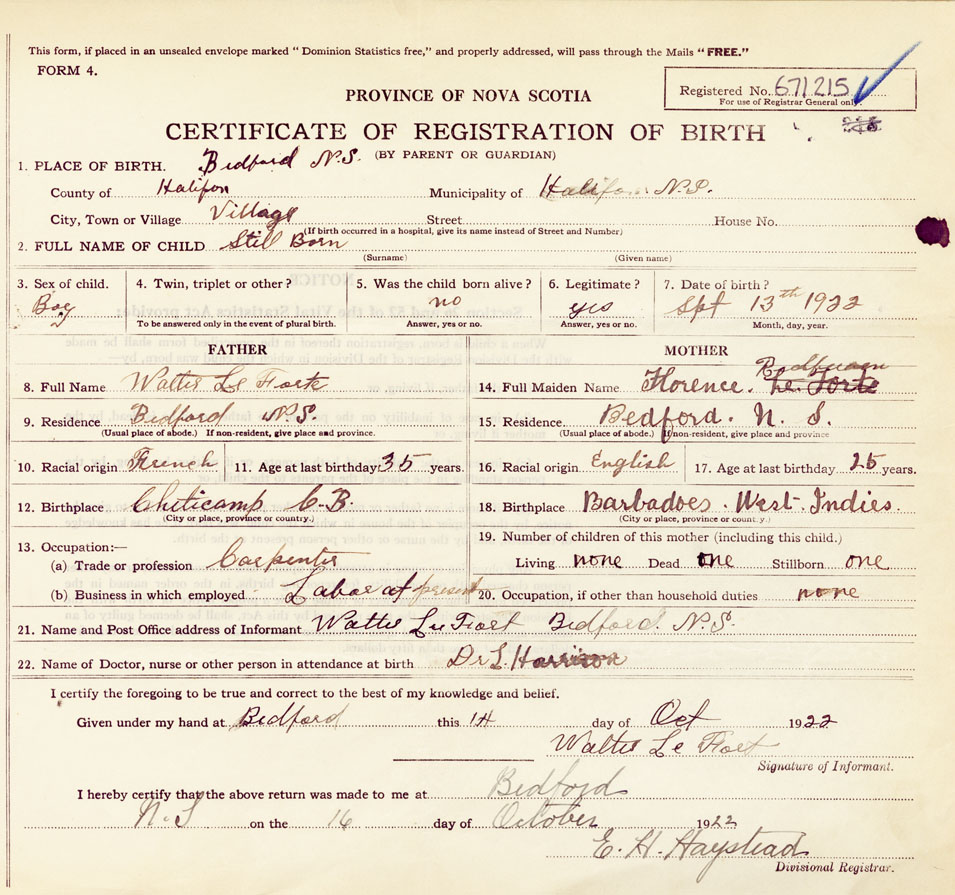 This form, if placed in an unsealed envelope marked “ Dominion Statistics free,” and properly addressed, will pass through the Mails “FREE.”
FORM 4.
Registered No. 671215
For use of Registrar General only.
PROVINCE OF NOVA SCOTIA
CERTIFICATE OF REGISTRATION OF BIRTH
(BY PARENT OR GUARDIAN)
1. PLACE OF BIRTH. Bedford N.S.
County of Halifax Municipality of Halifax N.S.
City, Town or Village Village Street House No.
(If birth occurred in a hospital, give its name instead of Street and Number)
2. FULL NAME OF CHILD Still Born
(Surname) (Given name)
3. Sex of child. 4. Twin, triplet or other? 5. Was the child born alive? 6. Legitimate? 7. Date of birth?
Boy no yes Spt 13th 1922
To be answered only in the event of plural birth. Answer, yes or no. Answer, yes or no. Month, day, year.
FATHER MOTHER
8. Full Name Walter Le Forte 14. Full Maiden Name Florence. Le Forte
9. Residence Bedford N.S. 15. Residence Bedford. N. S.
(Usual place of abode.) If non-resident, give place and province. (Usual place of abode.) If non-resident, give place and province
10. Racial origin French 11. Age at last birthday 35 years. 16. Racial origin English 17. Age at last birthday 25 years.
12. Birthplace Cheticamp C.B. 18. Birthplace Barbadoes. West Indies.
(City or place, province or country.) (City or place, province or country.)
13. Occupation:— 19. Number of children of this mother (including this child.)
(a) Trade or profession Carpenter Living none Dead one Stillborn one
(b) Business in which employed Labor at present 20. Occupation, if other than household duties none
21. Name and Post Office address of Informant Walter Le Fort Bedford. N.S.
22. Name of Doctor, nurse or other person in attendance at birth Dr L. Harrison
I certify the foregoing to be true and correct to the best of my knowledge and belief.
Given under my hand at Bedford this 14 day of Oct 1922
Walter Le Fort
Signature of Informant.
I hereby certify that the above return was made to me at Bedford
N.S on the 16 day of October 1922
E. H. Haystead
Divisional Registrar.